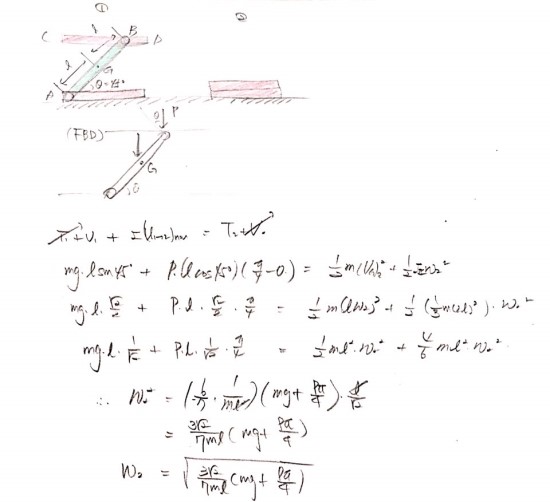 ① ②
C l B D
l G
A θ=45°
(FBD) P
G
θ
T₁ + V₁ + Σ(U₁₋₂)nc = T₂ + V₂
mg·l sin45° + P·(l cos45°)(π/4 - 0) = 1/2 m(V₂)² + 1/2 I ω₂²
mg·l·√2/2 + P·l·√2/2·π/4 = 1/2 m(lω₂)² + 1/2 (1/12 m(2l)²)·ω₂²
mg·l·1/√2 + P·l·1/√2·π/4 = 1/2 ml²·ω₂² + 4/6 ml² ω₂²
∴ ω₂² = (6/7 · 1/ml²)(mg + Pπ/4)·l/√2
= 3√2/7ml (mg + Pπ/4)
ω₂ = √(3√2/7ml (mg + Pπ/4))